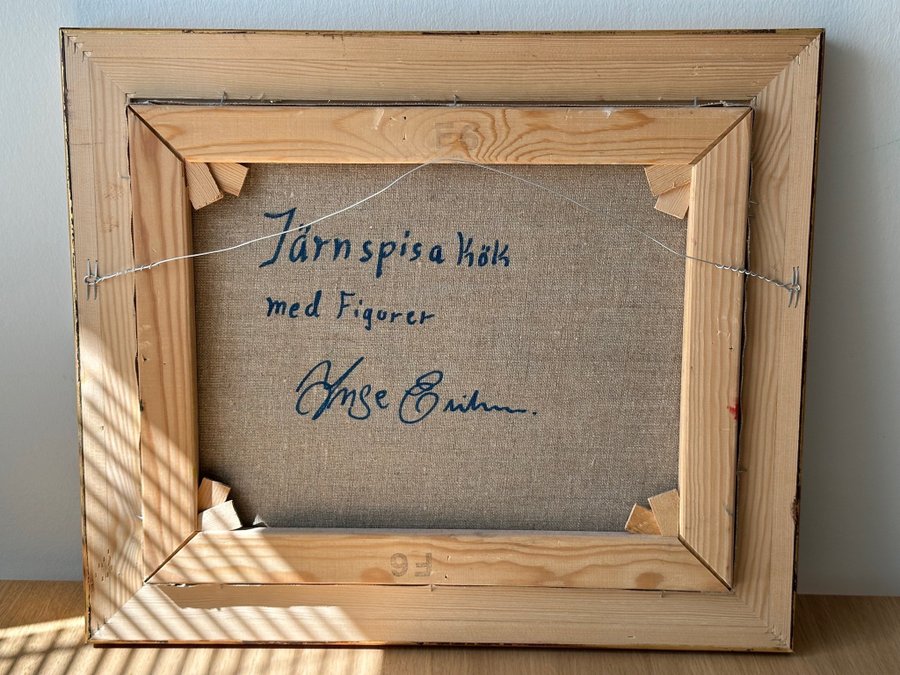 F6
Järnspisa Kök
med Figurer
Ynge Erihm.
F6